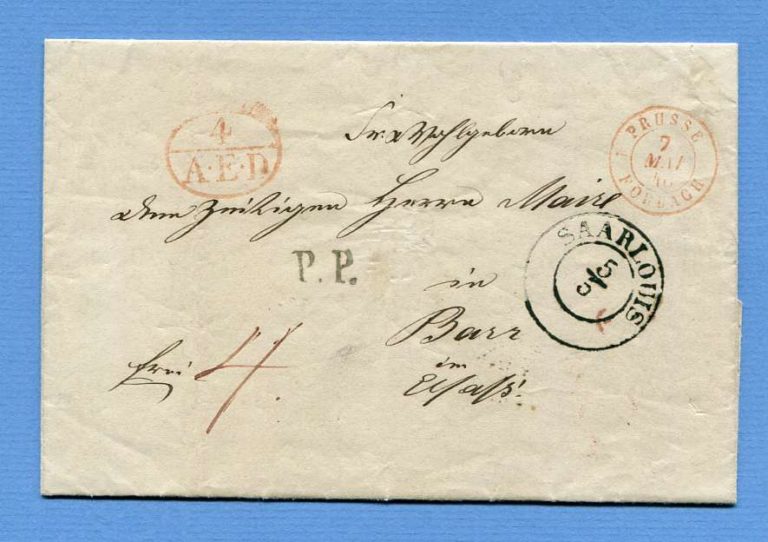 4
A·E·D
Sr. Wohlgeborn
PRUSSE
7
MAI
FORBACH
dem zeitigen Herrn Maire
SAARLOUIS
5
5
P.P.
in
Barr
im
Elsaß.
frei 4